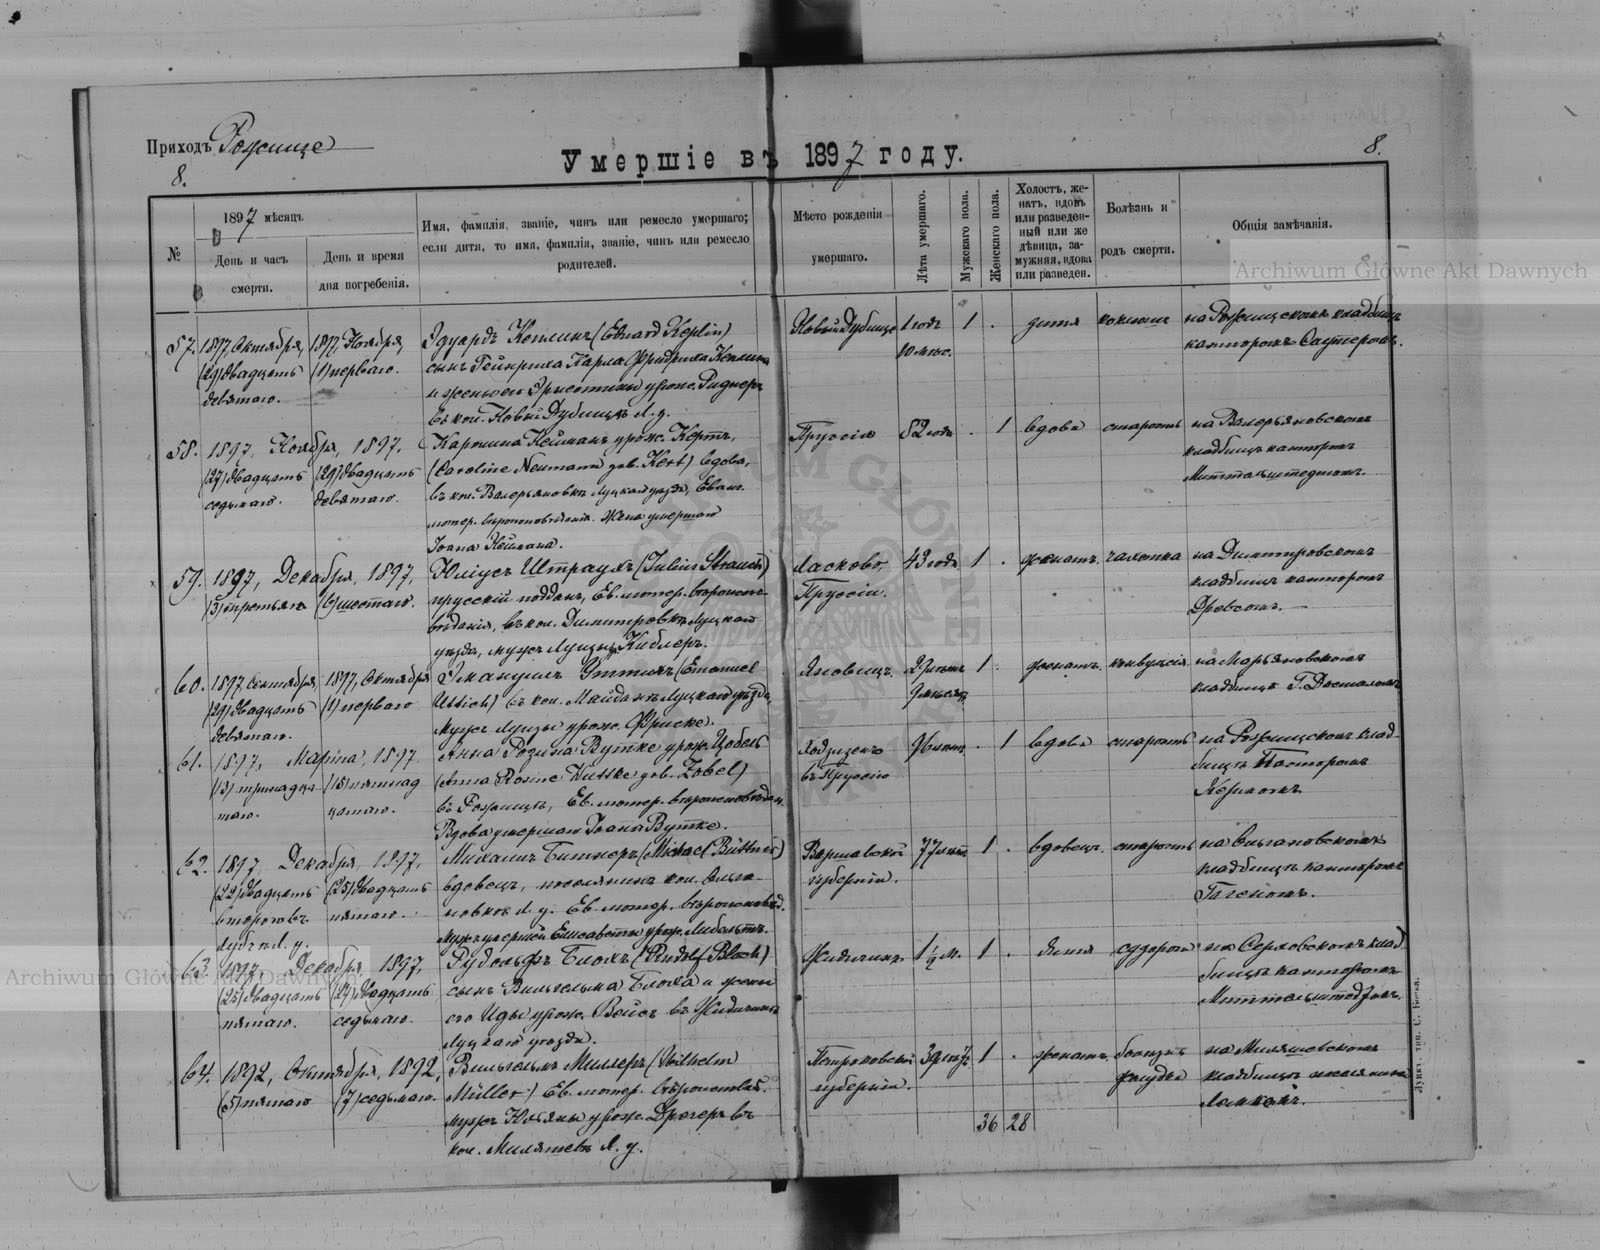 Приходъ Рожище
8.
Умершіе въ 1897 году.
8.
№
1897 мѣсяцъ
День и часъ смерти.
День и время дня погребенія.
Имя, фамилія, званіе, чинъ или ремесло умершаго;
если дитя, то имя, фамилія, званіе, чинъ или ремесло
родителей.
Мѣсто рожденія
умершаго.
Лѣта умершаго.
Мужескаго пола.
Женскаго пола.
Холостъ, же-
натъ, вдовъ
или разведен-
ный или же
дѣвица, за-
мужняя, вдова
или разведен.
Болѣзнь и
родъ смерти.
Общія замѣчанія.
Archiwum Główne Akt Dawnych
57.
1897, Октября,
(29) двадцать
девятаго.
1897, Ноября,
(1) перваго.
Эдуардъ Кеплинъ (Eduard Keplin)
сынъ Гейнриха Карла Фридриха Кеплина
и жены его Эрнестины урож.
въ кол. Новый Дубищъ Л. у.
Новый Дубище
1 годъ
10 мѣс.
1
.
дитя
коклюшъ
на Рожищскомъ кладбищѣ
канторомъ
58.
1897, Ноября, 1897.
(27) двадцать
седьмаго.
(29) двадцать
девятаго.
Каролина Нейманъ урож. Кертъ,
(Caroline Neumann geb. Kert) вдова,
въ кол. Валерьяновкѣ Луцкаго уѣзда, Еванг.
лютер. вѣроисповѣданія. Жена умершаго
Іоана Неймана.
Пруссія
82 года
.
1
вдова
старость
на Валерьяновскомъ
кладбищѣ канторомъ
Миттельштедтомъ.
59.
1897, Декабря, 1897,
(3) третьяго
(6) шестаго.
Юліусъ Штраухъ (Julius Strauch)
прусскій поддан., Ев. лютер. вѣроиспо-
вѣданія, въ кол. Димитровкѣ Луцкаго
уѣзда, мужъ Луизы Киблеръ.
Ласково
Пруссіи.
43 года
1
.
женатъ.
чахотка
на Димитровскомъ
кладбищѣ канторомъ
Древсомъ.
60.
1897, Сентября,
(29) двадцать
девятаго.
1897, Октября
(1) перваго
Эмануилъ Уттихъ (Emanuel
Uttich) въ кол. Майданъ Луцкаго уѣзда,
мужъ Луизы урож. Фриске.
Яновецъ.
29 лѣтъ
9 мѣсяц.
1
.
женатъ.
конвульсія
на Марьяновскомъ
кладбищѣ Г.
61.
1897, Марта, 1897.
(13) тринадца-
таго.
(15) пятнад
цатаго.
Анна Розина Вутке урож. Цобель
(Anna Rosine Wuttke geb. Zobel)
въ Рожищѣ, Ев. лютер. вѣроисповѣдан.
Вдова умершаго Іоана Вутке.
въ Пруссіи
96 лѣтъ
.
1
вдова
старость
на Рожищскомъ клад-
бищѣ Пасторомъ
Кернъомъ.
62.
1897, Декабря, 1897,
(22) двадцать
втораго въ
Л. у.
(25) двадцать
пятаго.
Михаилъ Битнеръ (Michael Büttner)
вдовецъ, поселянинъ кол. Ольга-
новка Л. у. Ев. лютер. вѣроисповѣд.
Мужъ умершей Елисаветы урож. Либельтъ.
Варшавской
губерніи.
77 лѣтъ
1
.
вдовецъ.
старость
на Ольгановскомъ
кладбищѣ канторомъ
63.
1897, Декабря, 1897,
(25) двадцать
пятаго.
(27) двадцать
седьмаго.
Рудольфъ Блохъ (Rudolf Bloch)
сынъ Вильгельма Блоха и жены
его Иды урож. Вейсъ въ Жидичинѣ
Луцкаго уѣзда.
Жидичинъ
1 1/2 м.
1
.
дитя
судорога
на клад-
бищѣ канторомъ
Миттельштедтомъ.
Archiwum Główne Akt Dawnych
64.
1892, Октября, 1892,
(5) пятаго
(7) седьмаго.
Вильгельмъ Миллеръ (Wilhelm
Müller) Ев. лютер. вѣроисповѣд.
мужъ Юльяны урож. Дрегеръ въ
кол. Миляшевъ Л. у.
Петроковской
губерніи.
39 лѣтъ
1
.
женатъ
болѣзнь
желудка
на Миляшевскомъ
кладбищѣ поселянин.
36
28
Луцкъ. тип. С. Бойка.